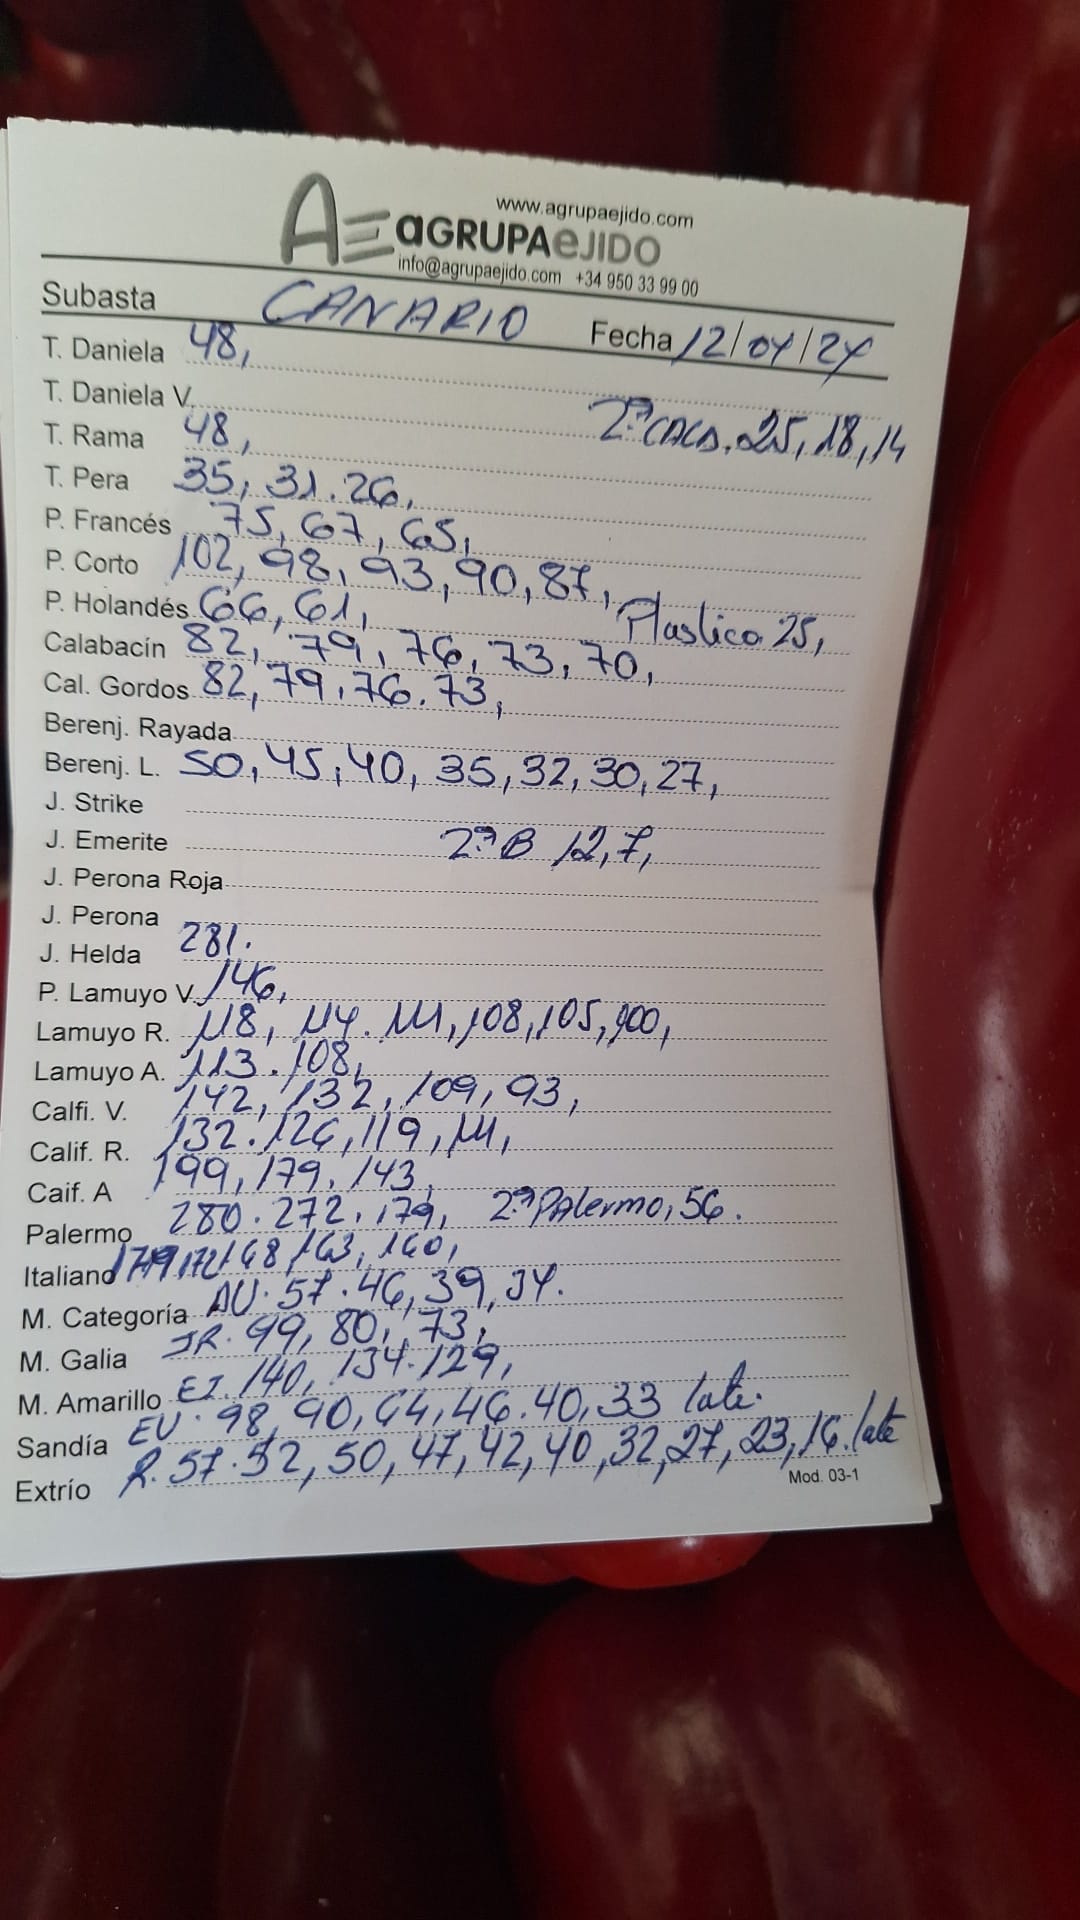 www.agrupaejido.com
AE aGRUPAeJIDO
info@agrupaejido.com +34 950 33 99 00
Subasta CANARIO Fecha 12/04/24
T. Daniela 48,
T. Daniela V. 2ª CALA. 25, 18, 14
T. Rama 48,
T. Pera 35, 31. 26,
P. Francés 75, 67, 65,
P. Corto 102, 98, 93, 90, 87,
P. Holandés 66, 61, Plastico 25,
Calabacín 82, 79, 76, 73, 70,
Cal. Gordos 82, 79, 76. 73,
Berenj. Rayada
Berenj. L. 50, 45, 40, 35, 32, 30, 27,
J. Strike
J. Emerite 2ª B 12, 7,
J. Perona Roja
J. Perona
J. Helda 281.
P. Lamuyo V. 146,
Lamuyo R. 118, 114. 111, 108, 105, 100,
Lamuyo A. 113. 108,
Calfi. V. 142, 132, 109, 93,
Calif. R. 132. 126, 119, 111,
Caif. A 199, 179, 143,
Palermo 280. 272, 179, 2ª PAlermo, 56.
Italiano 179 172 168 163, 160,
M. Categoría AU. 57. 46, 39, 34.
M. Galia JR. 99, 80, 73,
M. Amarillo EJ. 140, 134. 129,
Sandía EU. 98, 90, 64, 46. 40, 33 late.
Extrío R. 57. 52, 50, 47, 42, 40, 32, 27, 23, 16. late
Mod. 03-1